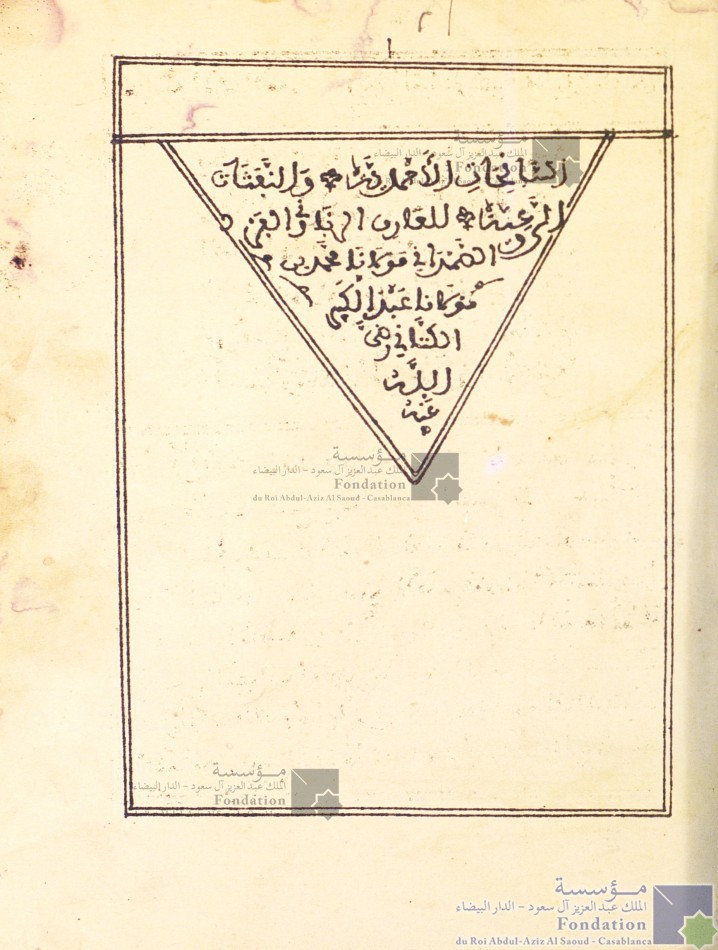 ٢
السانحات الأحمدية والنفثات
الروعية للعارف الرباني والفرد
الصمداني مولانا محمد بن
مولانا عبد الكبير
الكتاني رضي
الله
عنه
الملك عبد العزيز آل سعود - الدار البيضاء
Fondation
مؤسسة
الملك عبد العزيز آل سعود - الدار البيضاء
Fondation
du Roi Abdul-Aziz Al Saoud - Casablanca
مؤسسة
الملك عبد العزيز آل سعود - الدار البيضاء
Fondation
مؤسسة
الملك عبد العزيز آل سعود - الدار البيضاء
Fondation
du Roi Abdul-Aziz Al Saoud - Casablanca